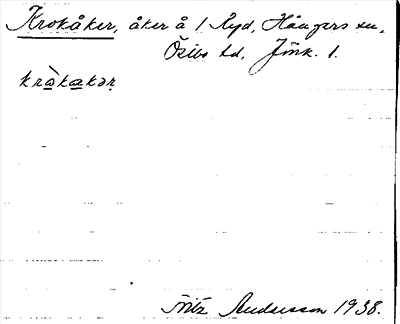 Krokåker, åker å 1 Ryd, Hångers sn,
Östbo hd, Jönk. l.
kròkakər
Fritz Andersson 1938.